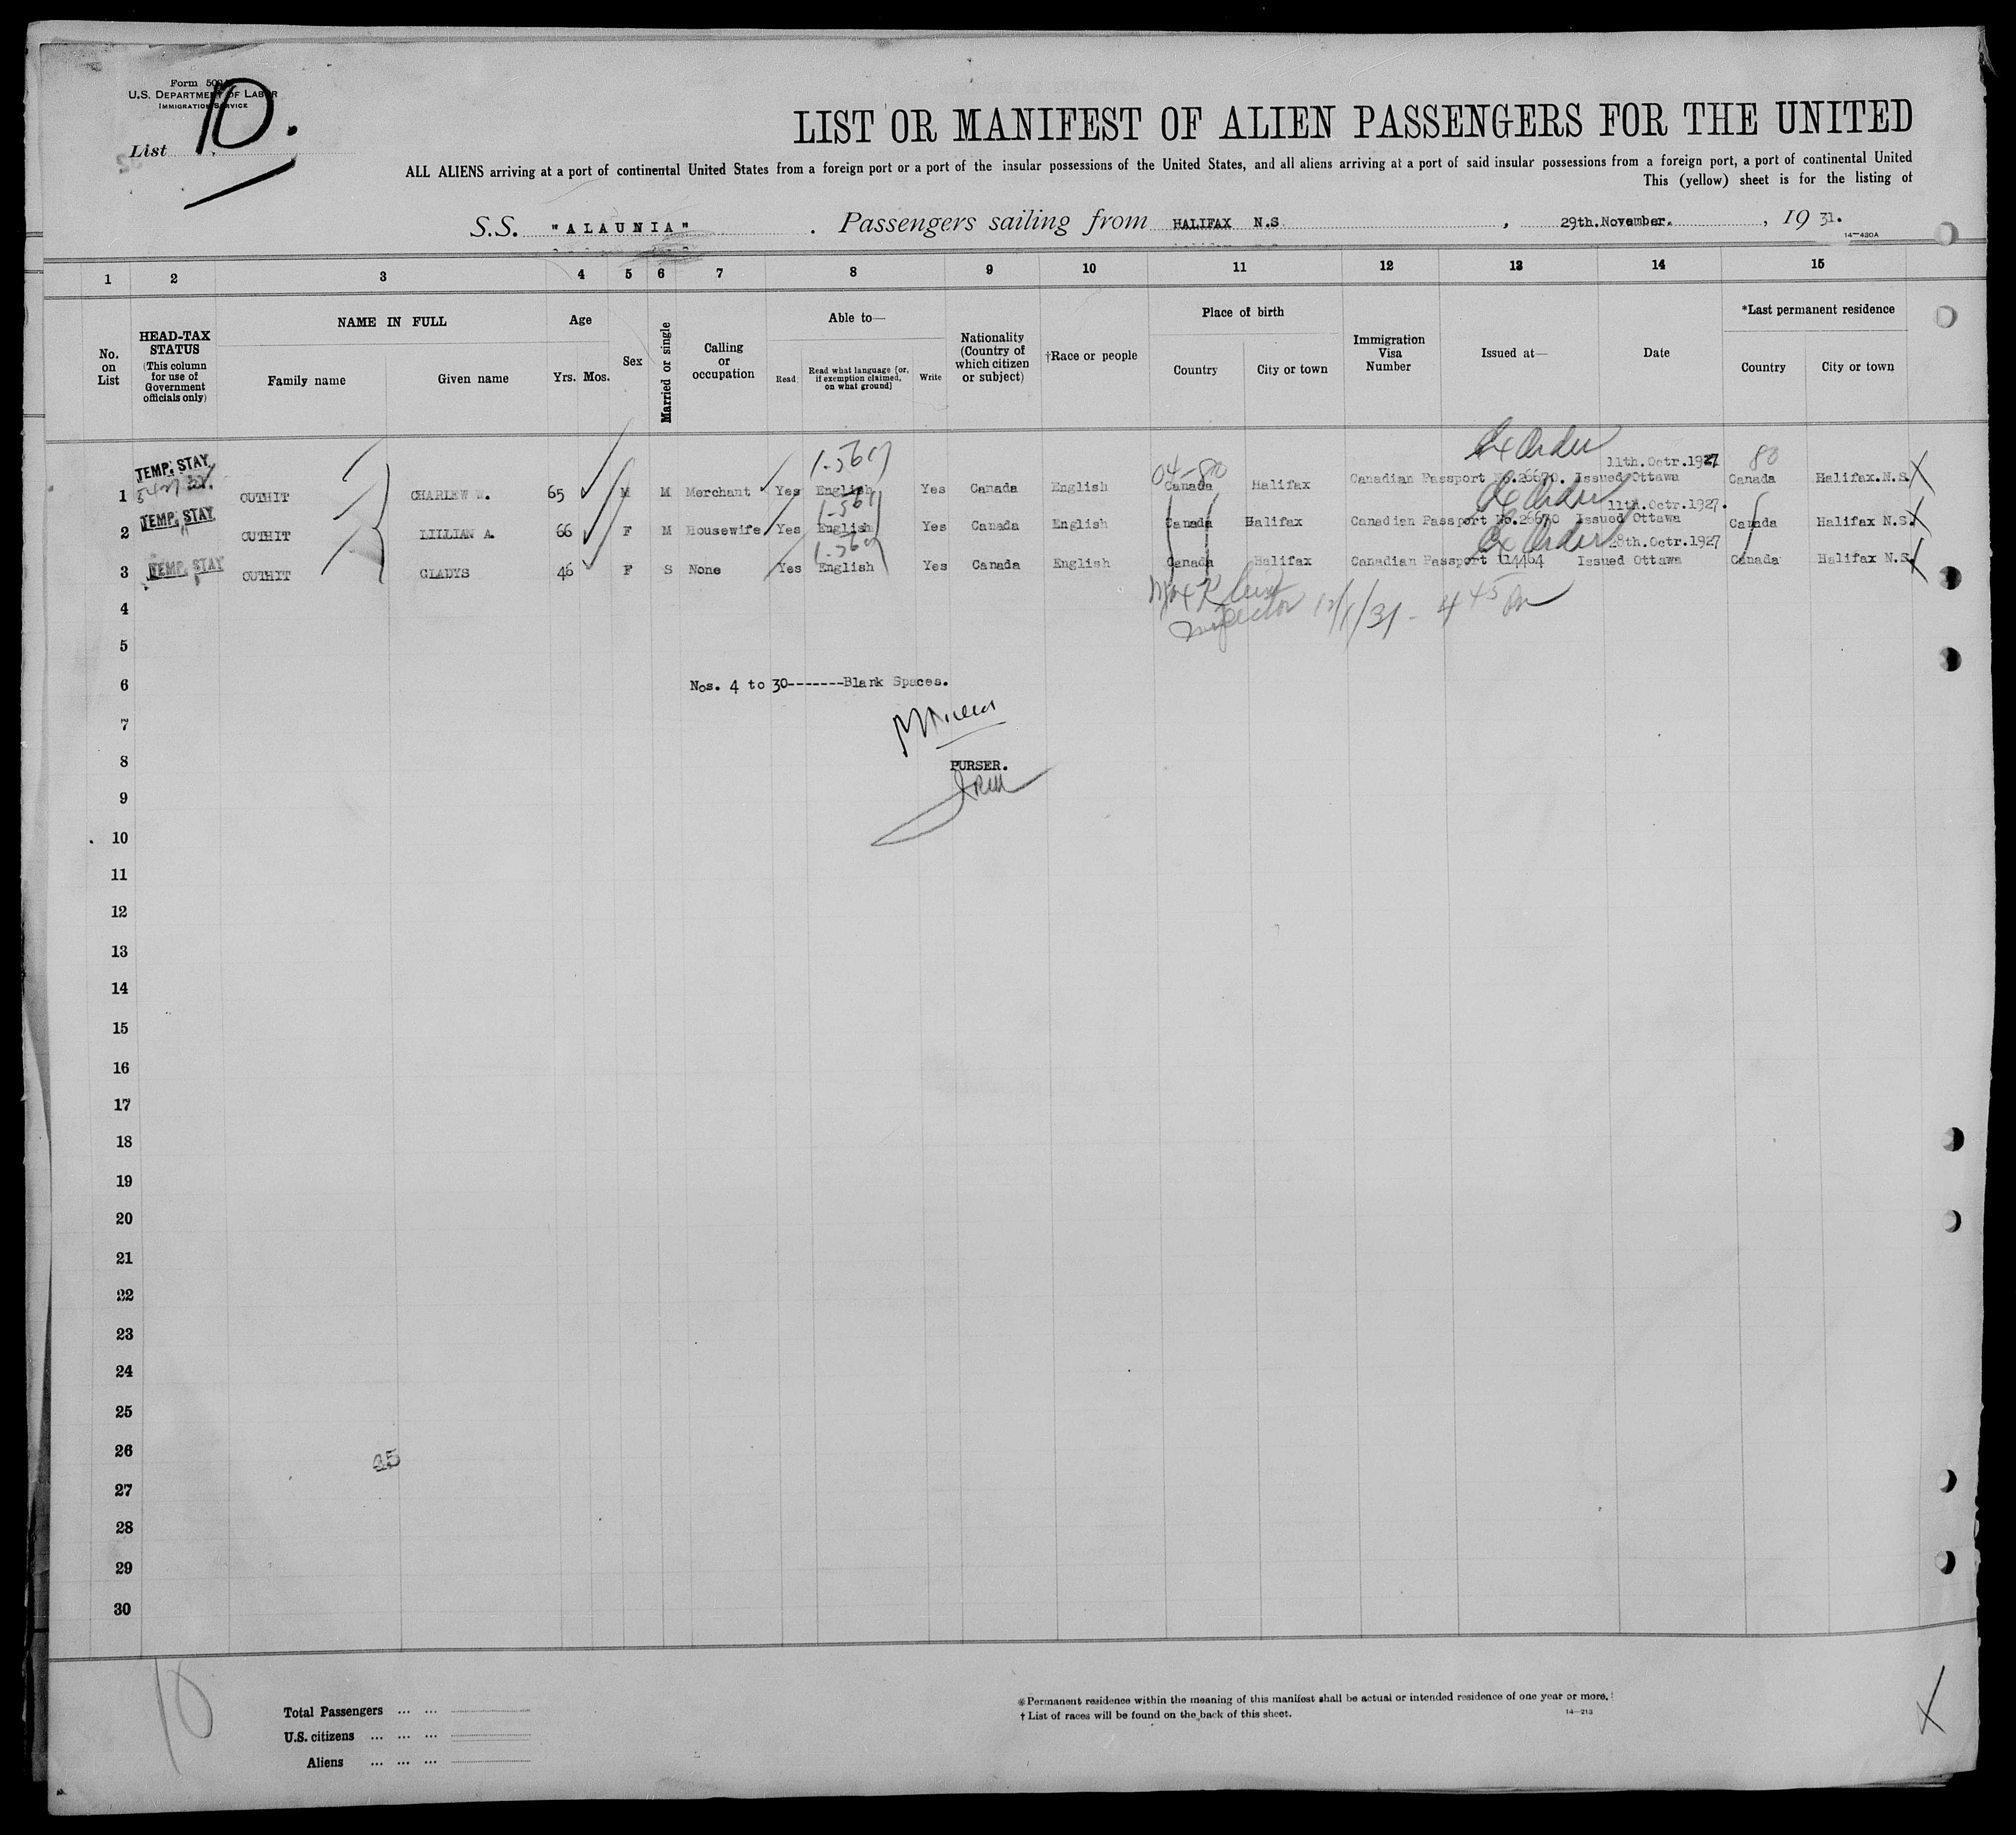 Form 500
U.S. DEPARTMENT OF LABOR
IMMIGRATION SERVICE
List 10.
LIST OR MANIFEST OF ALIEN PASSENGERS FOR THE UNITED
ALL ALIENS arriving at a port of continental United States from a foreign port or a port of the insular possessions of the United States, and all aliens arriving at a port of said insular possessions from a foreign port, a port of continental United
This (yellow) sheet is for the listing of
S.S. "ALAUNIA" . Passengers sailing from HALIFAX N.S , 29th.November. , 19 31.
14—430A
1 2 3 4 5 6 7 8 9 10 11 12 13 14 15
No. on List
HEAD-TAX STATUS
(This column for use of Government officials only)
NAME IN FULL
Family name
Given name
Age
Yrs. Mos.
Sex
Married or single
Calling or occupation
Able to—
Read
Read what language [or, if exemption claimed, on what ground]
Write
Nationality (Country of which citizen or subject)
†Race or people
Place of birth
Country
City or town
Immigration Visa Number
Issued at—
Date
*Last permanent residence
Country
City or town
Ex Order
11th.Octr.1927
TEMP. STAY 1-5609 04-80 80
1 OUTHIT CHARLEW W. 65 M M Merchant Yes English Yes Canada English Canada Halifax Canadian Passport No.26670. Issued Ottawa Canada Halifax.N.S.
Ex Order
11th.Octr.1927.
TEMP. STAY
2 OUTHIT LILLIAN A. 66 F M Housewife Yes English Yes Canada English Canada Halifax Canadian Passport No.26670 Issued Ottawa Canada Halifax N.S.
Ex Order
28th.Octr.1927
TEMP. STAY
3 OUTHIT GLADYS 46 F S None Yes English Yes Canada English Canada Halifax Canadian Passport 114464 Issued Ottawa Canada Halifax N.S.
4
Inspector 12/1/31 - 4 45 Pm
5
6 Nos. 4 to 30-------Blank Spaces.
7
8 PURSER.
9
10
11
12
13
14
15
16
17
18
19
20
21
22
23
24
25
26
45
27
28
29
30
10
Total Passengers ... ...
U.S. citizens ... ... ...
Aliens ... ... ...
*Permanent residence within the meaning of this manifest shall be actual or intended residence of one year or more.
†List of races will be found on the back of this sheet.
14—213